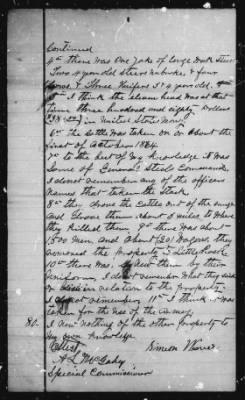 Continued
4th There was One yoke of large Work Steers
Two 4 year old Steers unbroke, & four
Cows & Three Heifers 3 & 4 years old.
5th I think the above head was at that
time three hundred and eighty Dollars
in United States Money
6th the Cattle was taken on or about the
first of October 1864.
7th to the best of my knowledge it was
Some of General Steel Command
I do not remember any of the officers
names that taken the Stock.
8th they drove the Cattle out of the range
and drove them about 3 miles to where
they killed them. 9th there was about
1500 Men, and about (20) Wagons, they
removed the property to Little Rock
10th there was by their
uniform, I do not remember what they said
or did in relation to the property.
I do not remember, 11th I think it was
taken for the use of the army.
80. I new nothing of the other property to
my own knowledge.
Attest
A L McGahy
Special Commissioner
Simeon